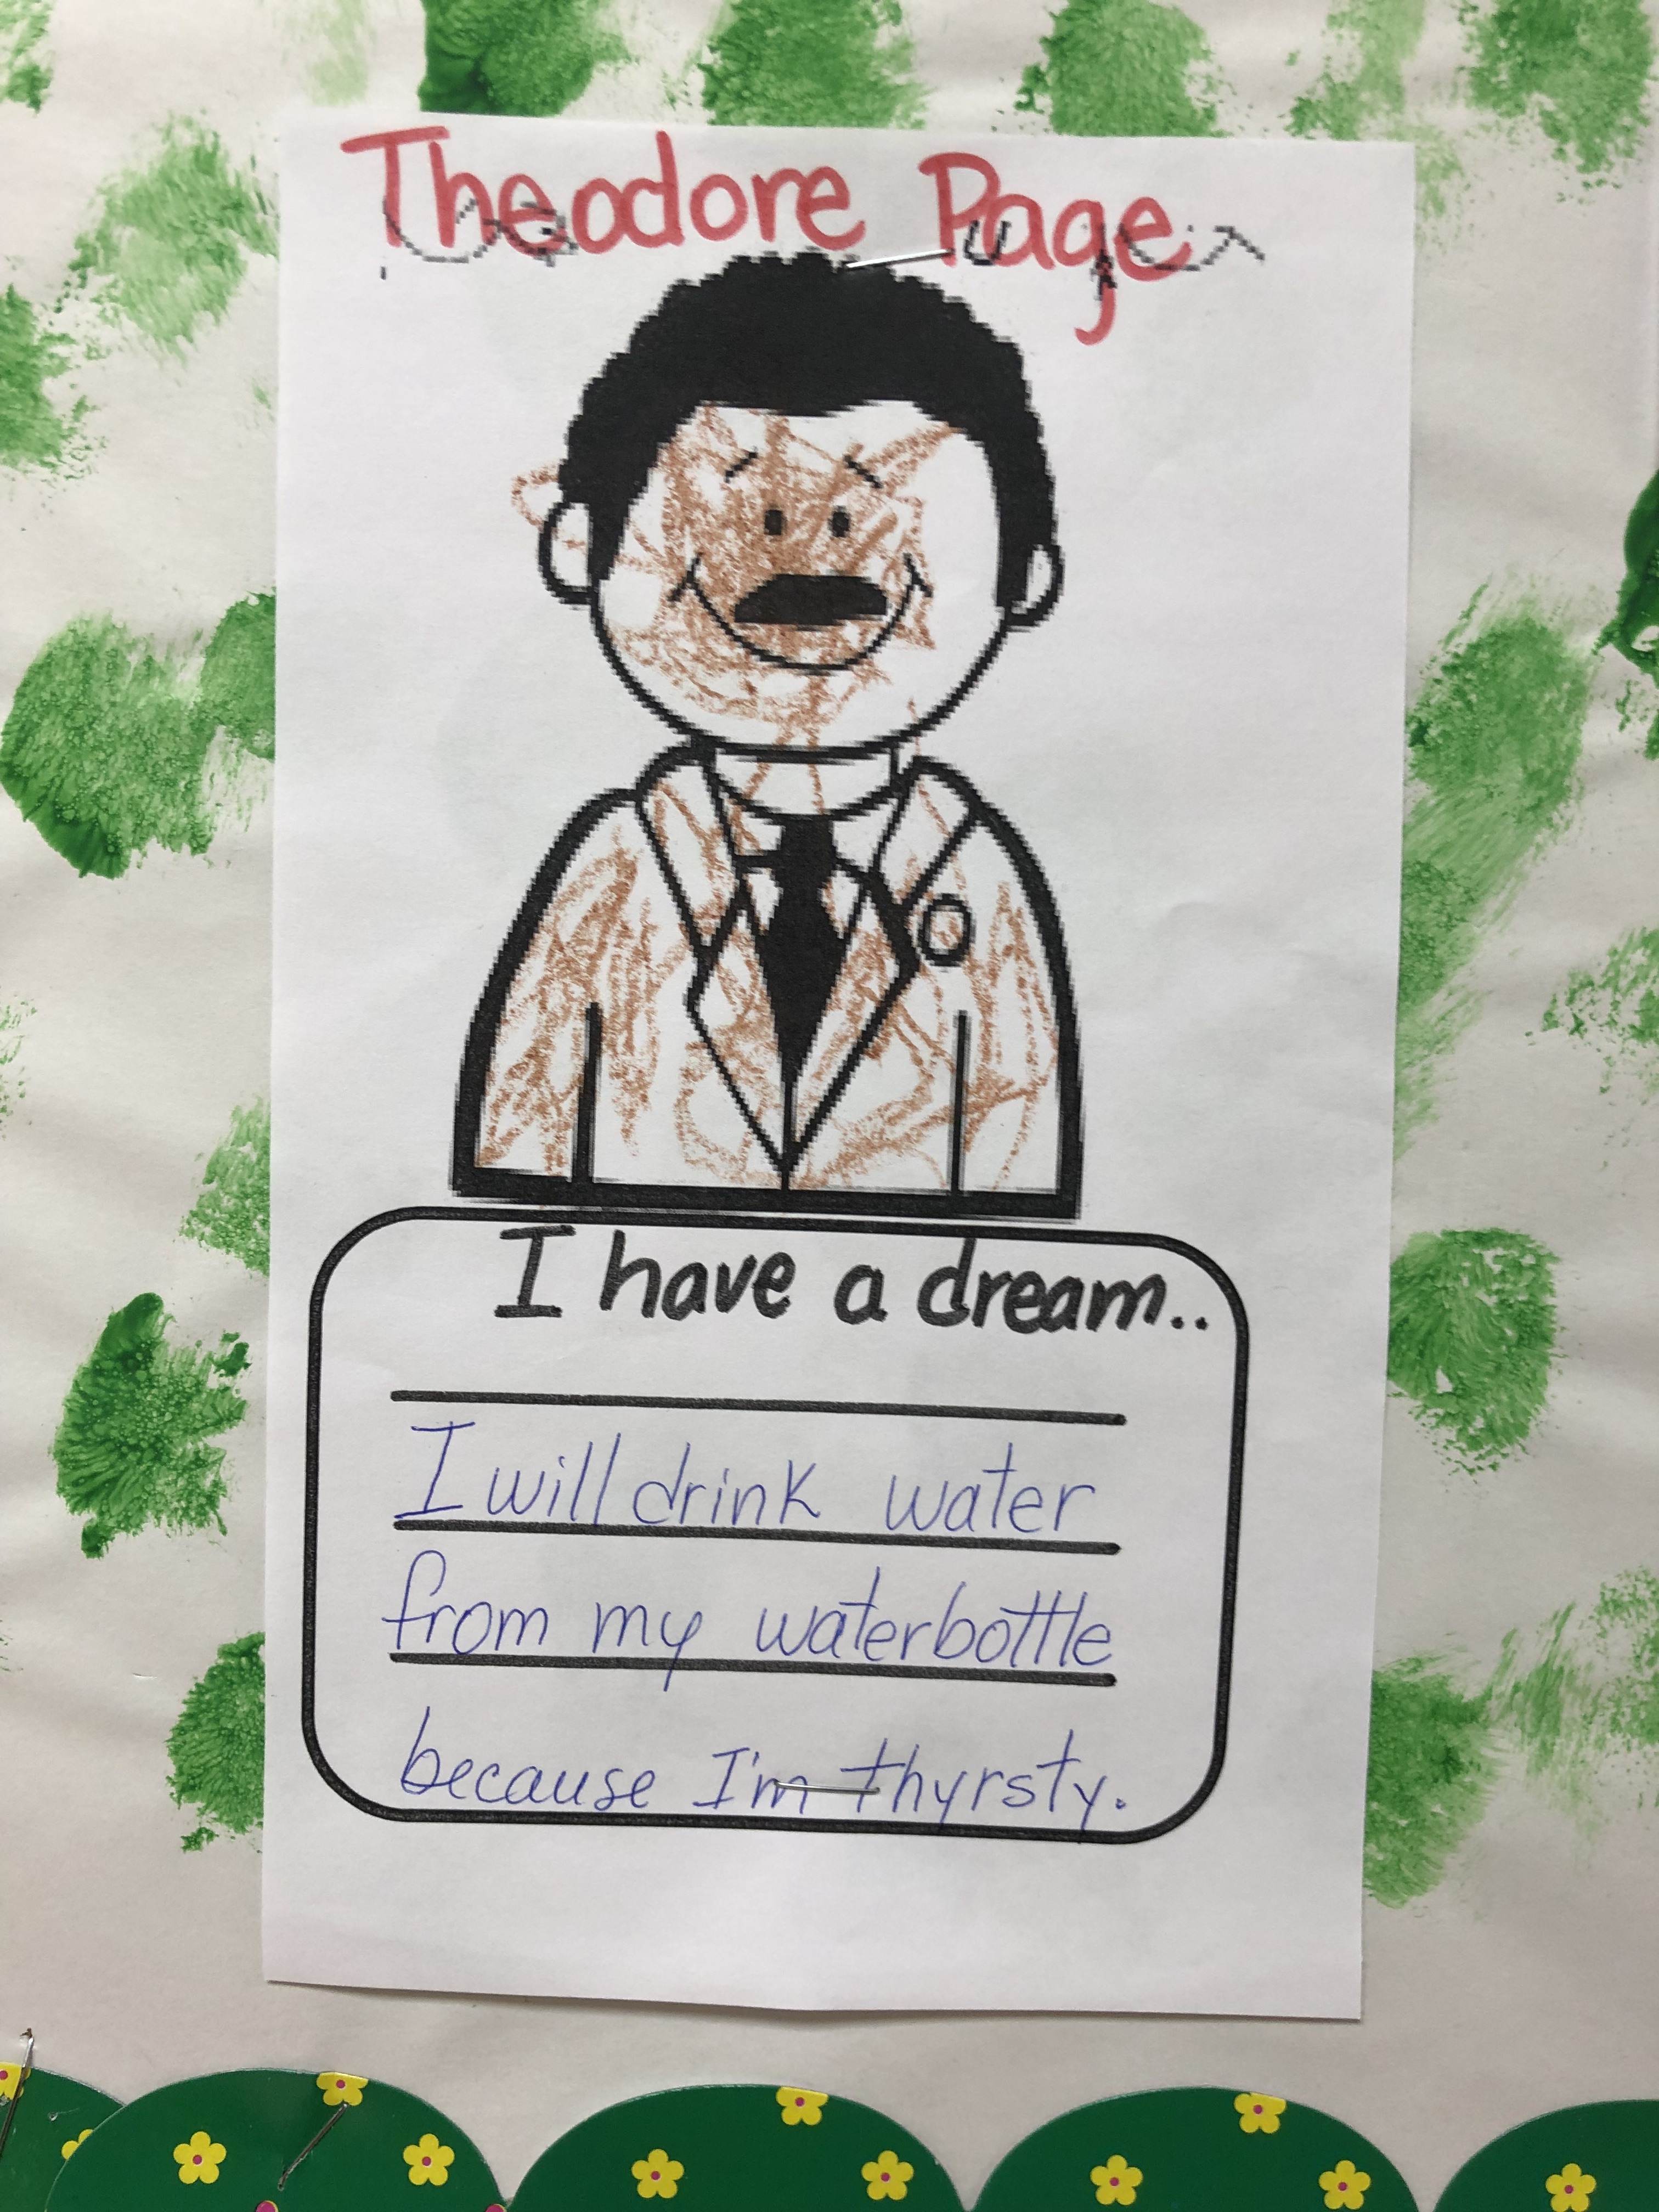 Theodore Page
I have a dream..
I will drink water
from my waterbottle
because I'm thyrsty.